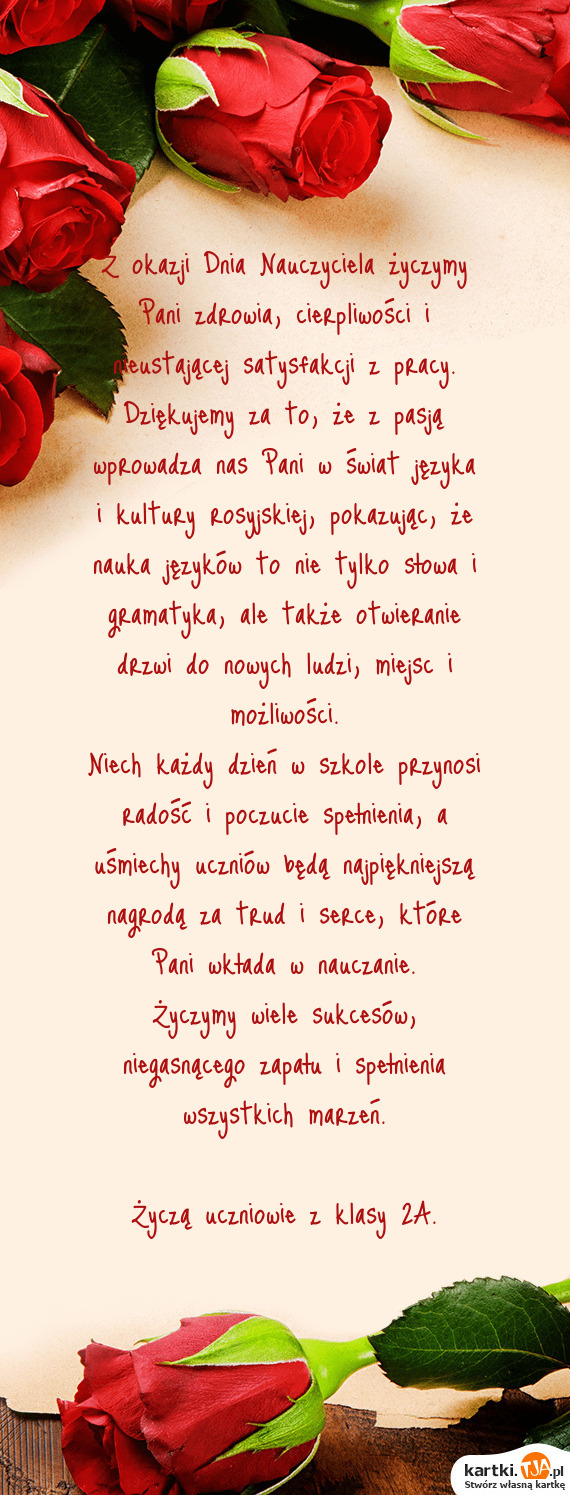 Z okazji Dnia Nauczyciela życzymy
Pani zdrowia, cierpliwości i
nieustającej satysfakcji z pracy.
Dziękujemy za to, że z pasją
wprowadza nas Pani w świat języka
i kultury rosyjskiej, pokazując, że
nauka języków to nie tylko słowa i
gramatyka, ale także otwieranie
drzwi do nowych ludzi, miejsc i
możliwości.
Niech każdy dzień w szkole przynosi
radość i poczucie spełnienia, a
uśmiechy uczniów będą najpiękniejszą
nagrodą za trud i serce, które
Pani wkłada w nauczanie.
Życzymy wiele sukcesów,
niegasnącego zapału i spełnienia
wszystkich marzeń.
Życzą uczniowie z klasy 2A.
kartki.TJA.pl
Stwórz własną kartkę